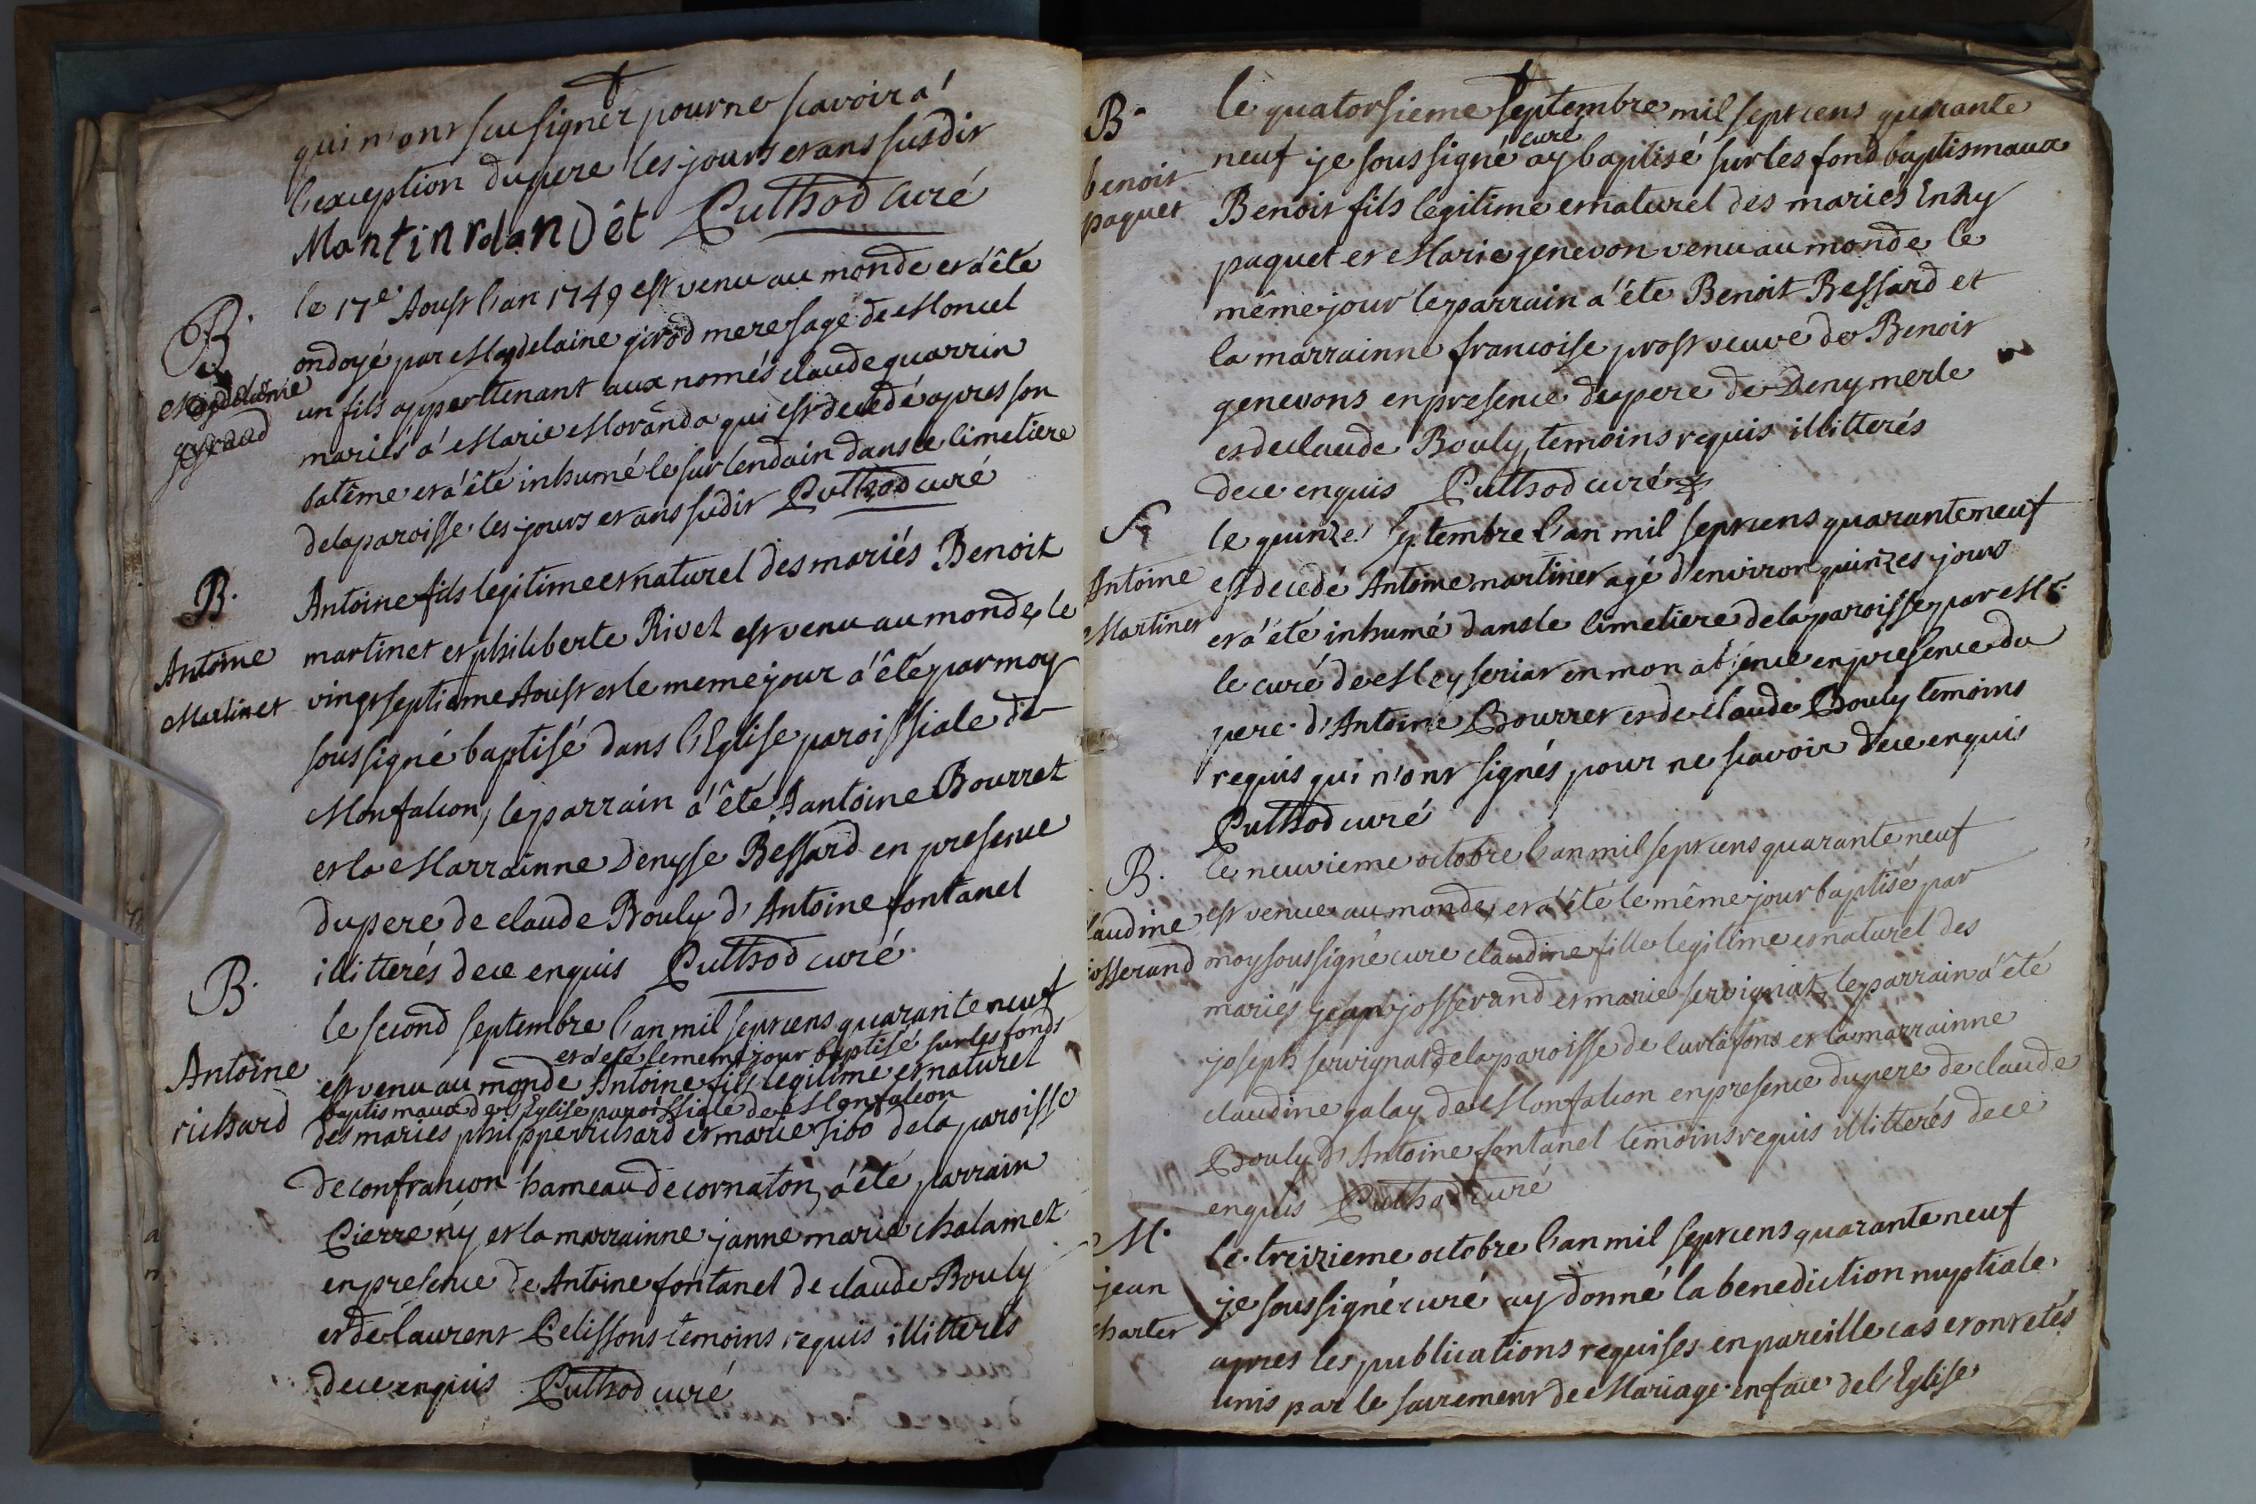 qui n'ont scu signer pour ne scavoir a'
l'exception du pere les jours et ans susdit
Mantin rolandêt Puthod curé
B.
le 17e. Aoust l'an 1749 est venu au monde et a'ête
ondoyé par Magdelaine girod mere sage de Moncel
un fils appertenant aux només claude guarrin
mariés a' Marie Moranda qui est decedé apres son
batême et a'été inhumé le surlendain dans le cimetiere
de la paroisse les jours et ans sudit Puthod curé
B.
Antoine
Martinet
Antoine fils legitime et naturel des mariés Benoit
martinet et philiberte Rivet est venu au monde, le
vingt septieme Aoust et le meme jour a'êté par moy
soussigné baptisé dans l'Eglise paroissiale de
Monfalcon, le parrain a'êté Aantoine Bourret
et la Marrainne Denyse Bessard en presence
du pere de claude Bouly d'Antoine fontanel
illitterés de ce enquis Puthod curé.
B.
Antoine
richard
le second septembre l'an mil sept cens quarante neuf
et a'eté le meme jour baptisé sur les fonds
est venu au monde Antoine fils legitime et naturel
baptismaux de l'Eglise paroissiale de Monfalcon
des mariés philippe richard et marie sibo de la paroisse
de confrancon hameau de cornaton, a'été parrain
Pierre ny et la marrainne janne marie chalamet
en presence de Antoine fontanel de claude Bouly
et de laurent Pelissons temoins requis illitterés
de ce enquis Puthod curé
B.
benoit
paquet
le quatorsieme septembre mil sept cens quarante
curé
neuf je soussigné ay baptisé sur les fond baptismaux
Benoit fils legitime et naturel des mariés Enry
paquet et Marie genevon venu au monde le
même jour le parrain a'éte Benoit Bessard et
la marrainne francoise prost veuve de Benoit
genevons en presence du pere de Deny merle
et de claude Bouly temoins requis illitterés
de ce enquis Puthod curé
S
Antoine
Martinet
le quinze septembre l'an mil sept cens quarante neuf
est decedé Antoine martinet agé d'environ quinzes jours
et a'été inhumé dans le cimetiere de la paroisse par Mr.
le curé de Meyseriat en mon absence en presence du
pere d'Antoine Bourret et de claude Bouly temoins
requis qui n'ont signés pour ne scavoir de ce enquis
Puthod curé
B.
laudine
josserand
le neuvieme octobre l'an mil sept cens quarante neuf
est venue au monde, et a'été le même jour baptisé par
moy soussigné curé claudine fille legitime et naturel des
mariés jean josserand et marie servignat, le parrain a'été
joseph servignat de la paroisse de curtafons et la marrainne
claudine galay de Monfalcon en presence du pere de claude
Bouly d'Antoine fontanel temoins requis illitterés de ce
enquis Puthod curé
M.
jean
charlet
le treizieme octobre l'an mil sept cens quarante neuf
je soussigné curé ay donné la benediction nuptiale
apres les publications requises en pareille cas et ont etés
unis par le sacrement de Mariage en face de l'Eglise